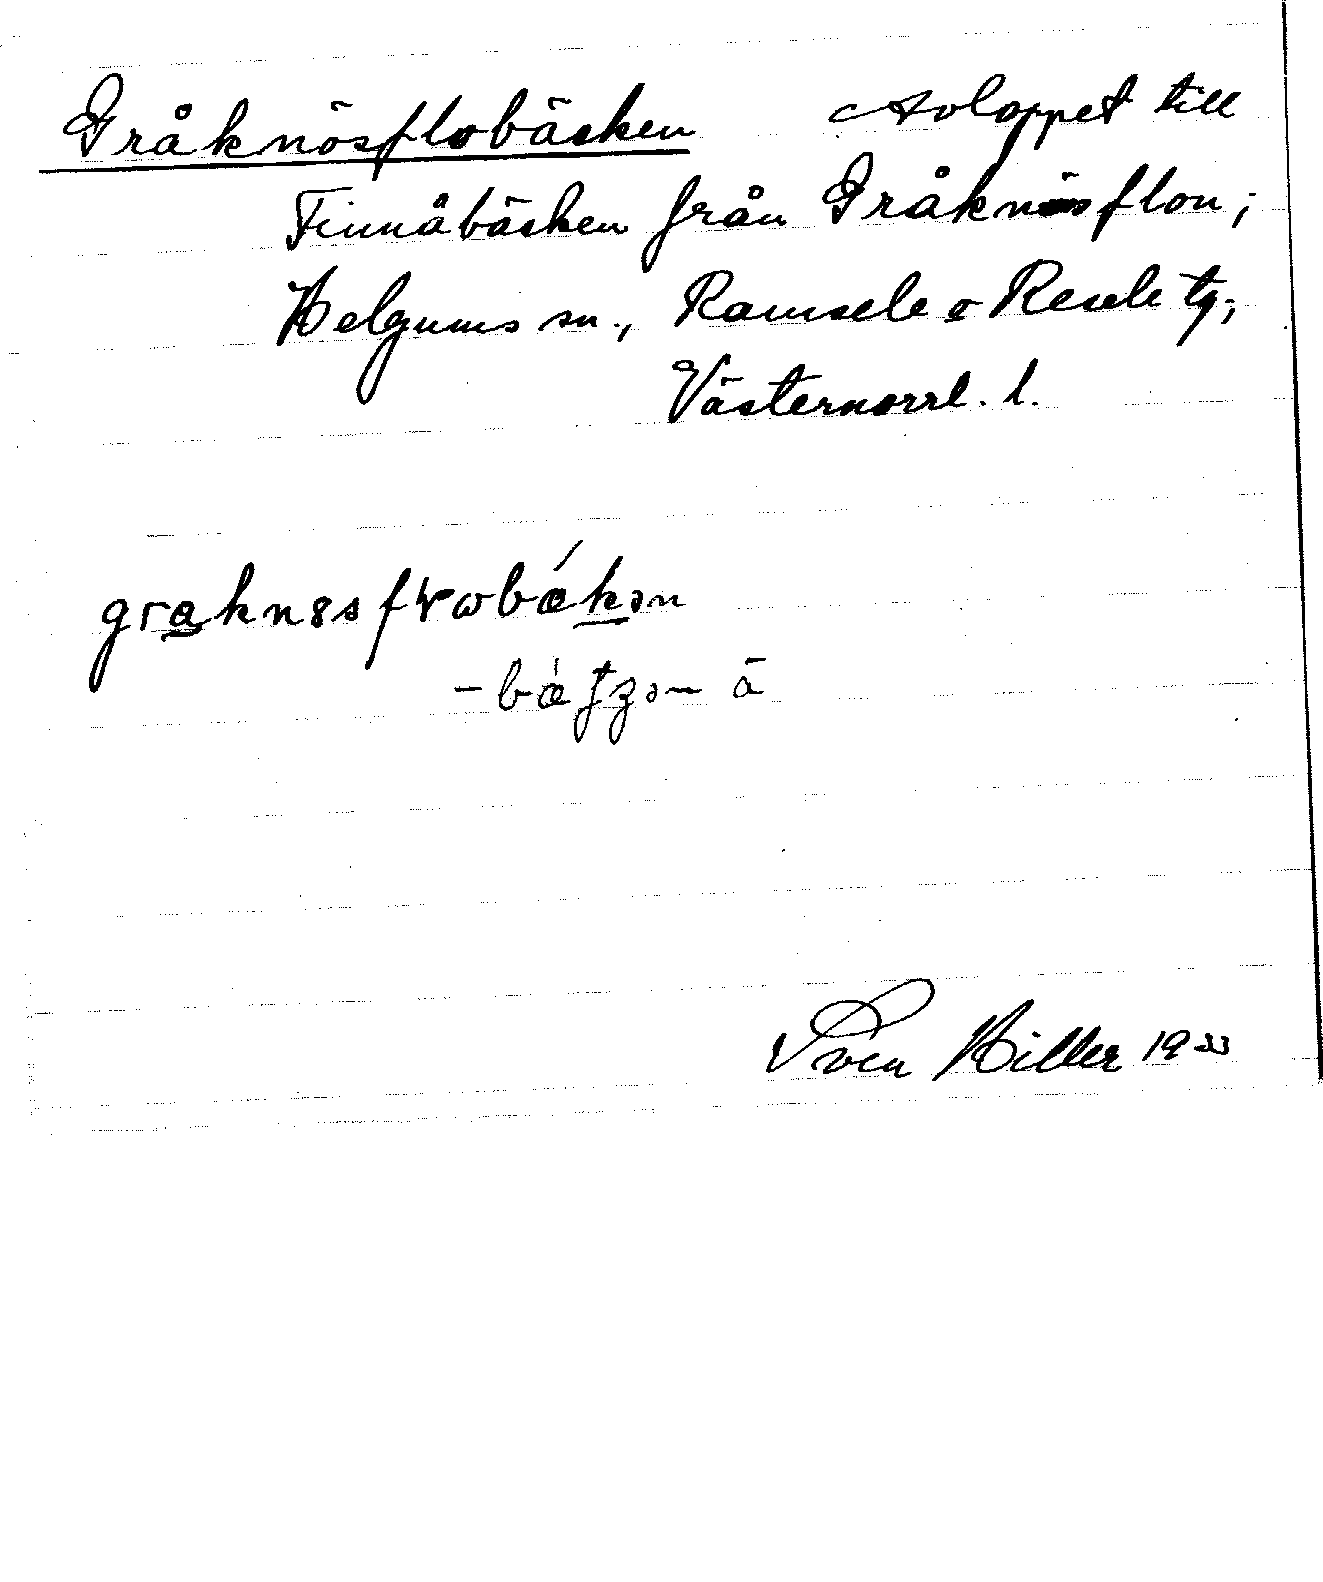 Gråknösflobäcken Avloppet till
Finnåbäcken från Gråknösflon;
Helgums sn., Ramsele o Resele tg;
Västernorrl. l.
-bǽʈʂən ä
Sven Hiller 1933